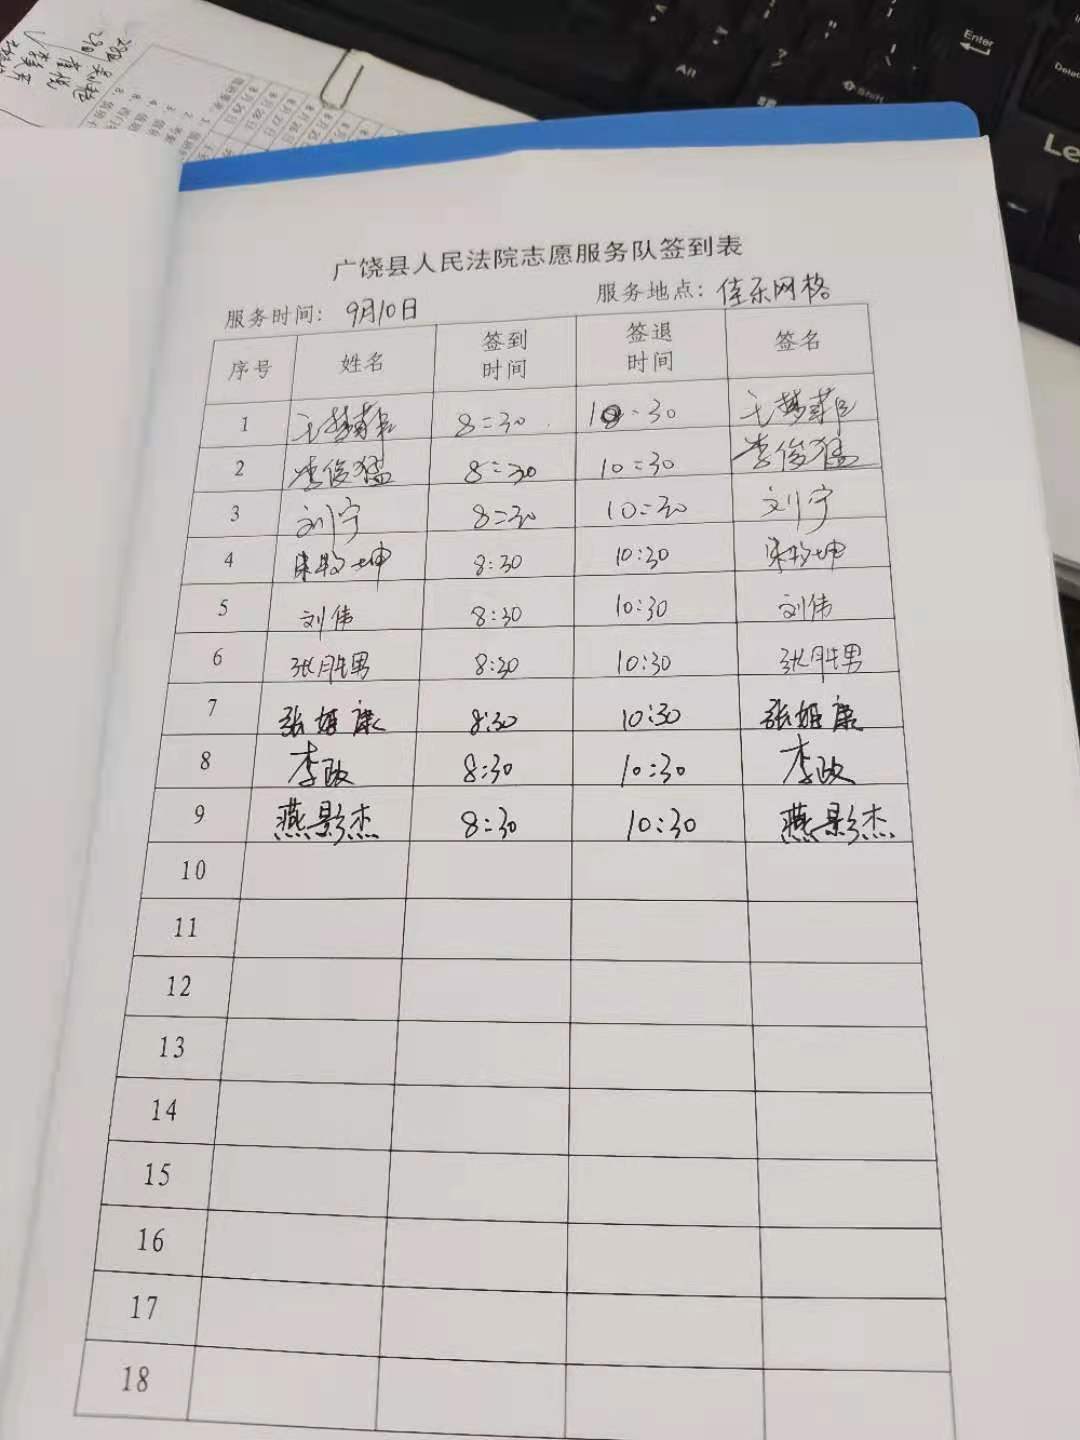 广饶县人民法院志愿服务队签到表
服务时间: 9月10日 服务地点: 佳乐网格
序号 姓名 签到时间 签退时间 签名
1 王梦菲 8:30 10:30 王梦菲
2 李俊猛 8:30 10:30 李俊猛
3 刘宁 8:30 10:30 刘宁
4 8:30 10:30
5 刘伟 8:30 10:30 刘伟
6 张胜男 8:30 10:30 张胜男
7 张姬康 8:30 10:30 张姬康
8 李政 8:30 10:30 李政
9 燕影杰 8:30 10:30 燕影杰
10
11
12
13
14
15
16
17
18
Enter
Delete
Alt
Shift
Le